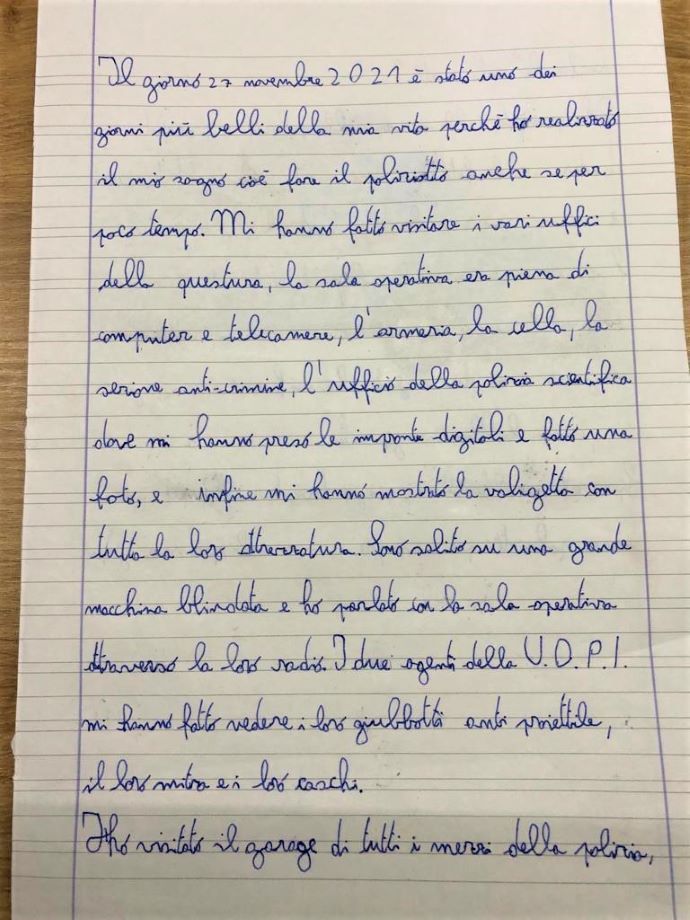 Il giorno 27 novembre 2021 è stato uno dei
giorni più belli della mia vita perchè ho realizzato
il mio sogno cioè fare il poliziotto anche se per
poco tempo. Mi hanno fatto visitare i vari uffici
della questura, la sala operativa era piena di
computer e telecamere, l'armeria, la cella, la
sezione anti-crimine, l'ufficio della polizia scientifica
dove mi hanno preso le impronte digitali e fatto una
foto, e infine mi hanno mostrato la valigetta con
tutta la loro attrezzatura. Sono salito su una grande
macchina blindata e ho parlato con la sala operativa
attraverso la loro radio. I due agenti della U.O.P.I.
mi hanno fatto vedere i loro giubbotti anti proiettile,
il loro mitra e i loro caschi.
Ho visitato il garage di tutti i mezzi della polizia,